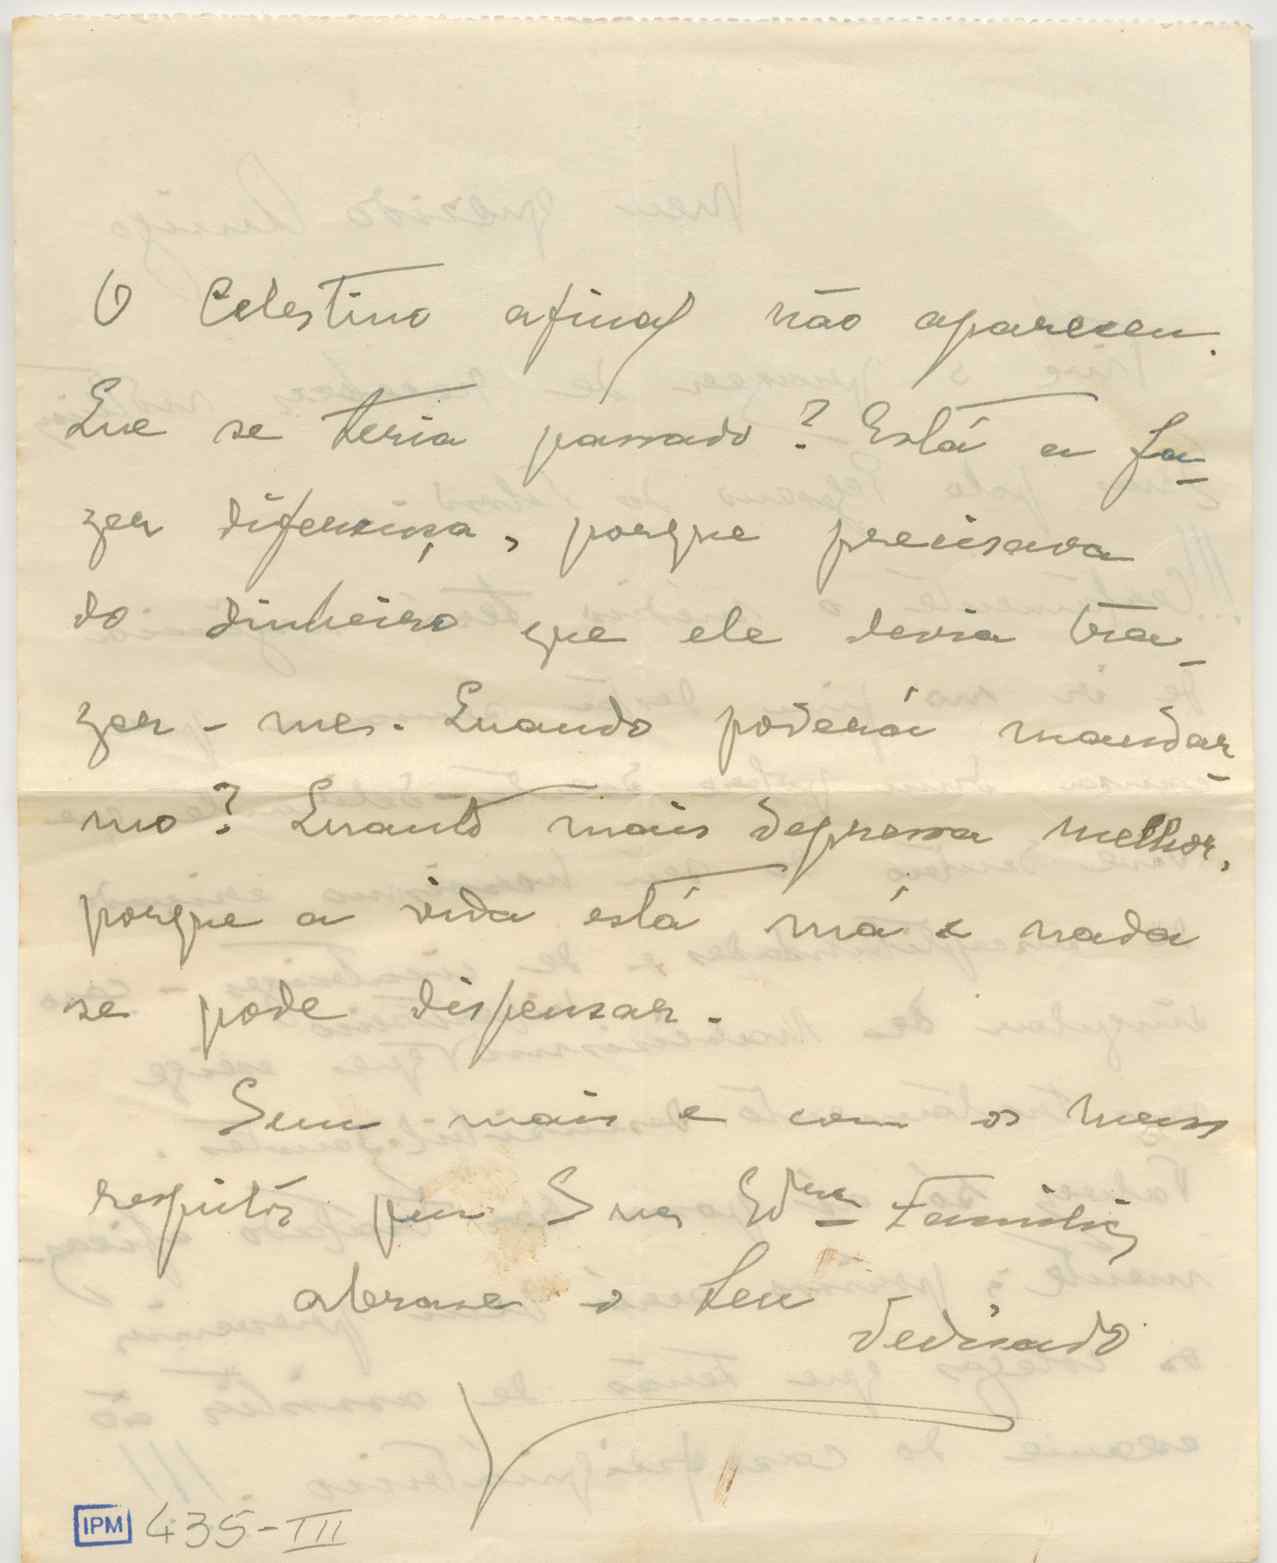 O Celestino afinal não apareceu.
Que se teria passado? Está a fa-
zer diferença, porque precisava
do dinheiro que ele devia tra-
zer-me. Quando poderá mandar-
mo? Quanto mais depressa melhor,
porque a vida está má e nada
se pode dispensar.
Sem mais e com os meus
respeitos p.a Sua Ex.ma Familia,
abrace o teu
dedicado
IPM 435-III